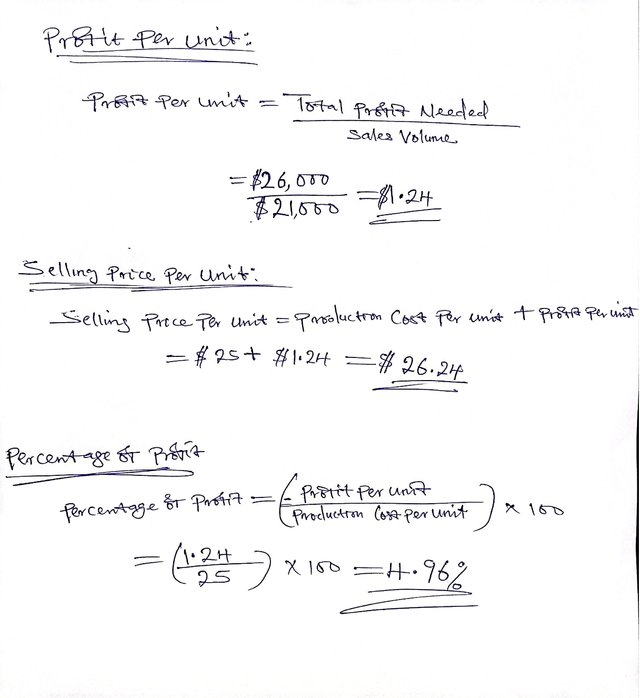 Profit Per unit:
Profit Per unit = Total Profit Needed
Sales Volume
= $26,000
$21,000 = $1.24
Selling Price Per unit:
Selling Price Per unit = Production Cost Per unit + Profit Per unit
= $25 + $1.24 = $26.24
Percentage of Profit
Percentage of Profit = ( Profit Per unit
Production Cost per unit ) × 100
= ( 1.24
25 ) × 100 = 4.96%